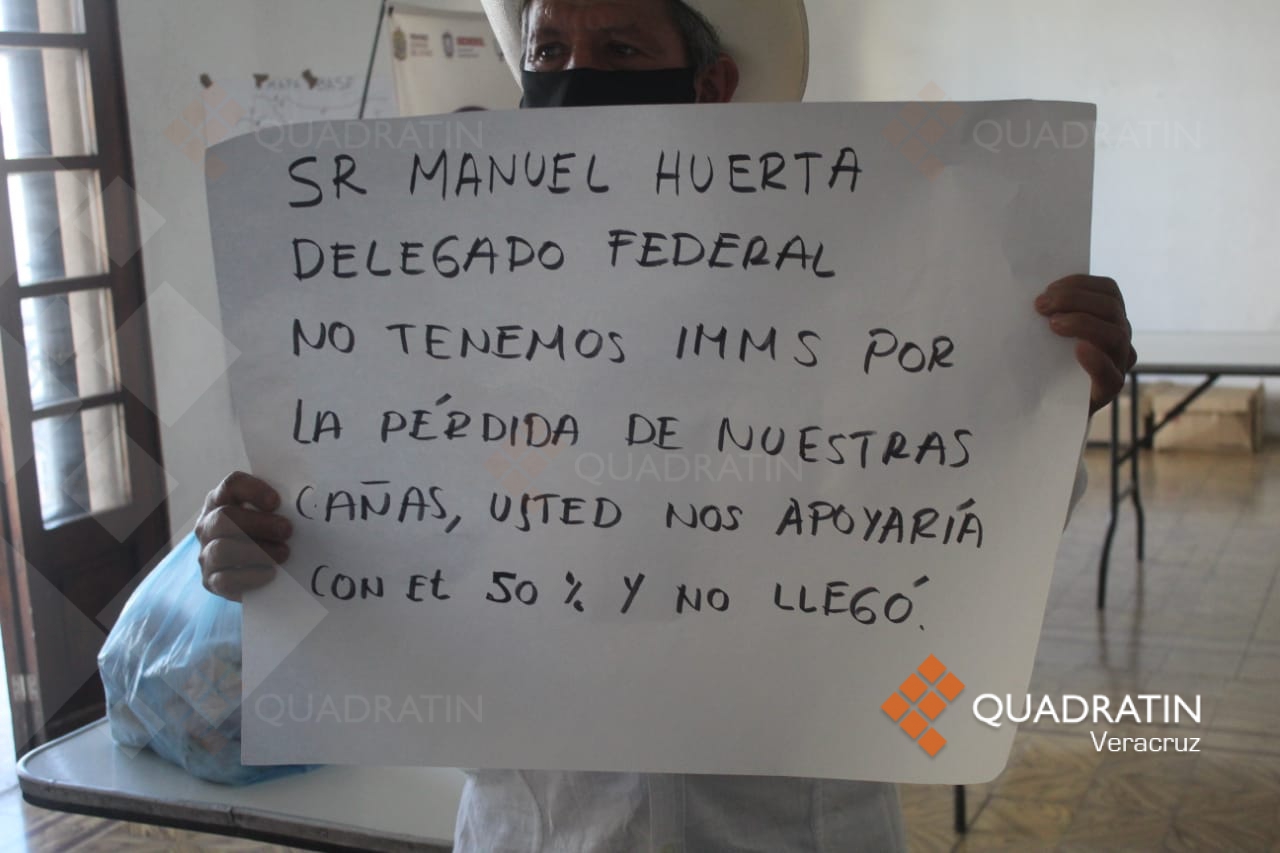 MAPA BASE
QUADRATIN
QUADRATIN
SR MANUEL HUERTA
DELEGADO FEDERAL
NO TENEMOS IMMS POR
LA PÉRDIDA DE NUESTRAS
CAÑAS, USTED NOS APOYARÍA
CON EL 50% Y NO LLEGÓ.
QUADRATIN
QUADRATIN
QUADRATIN
Veracruz